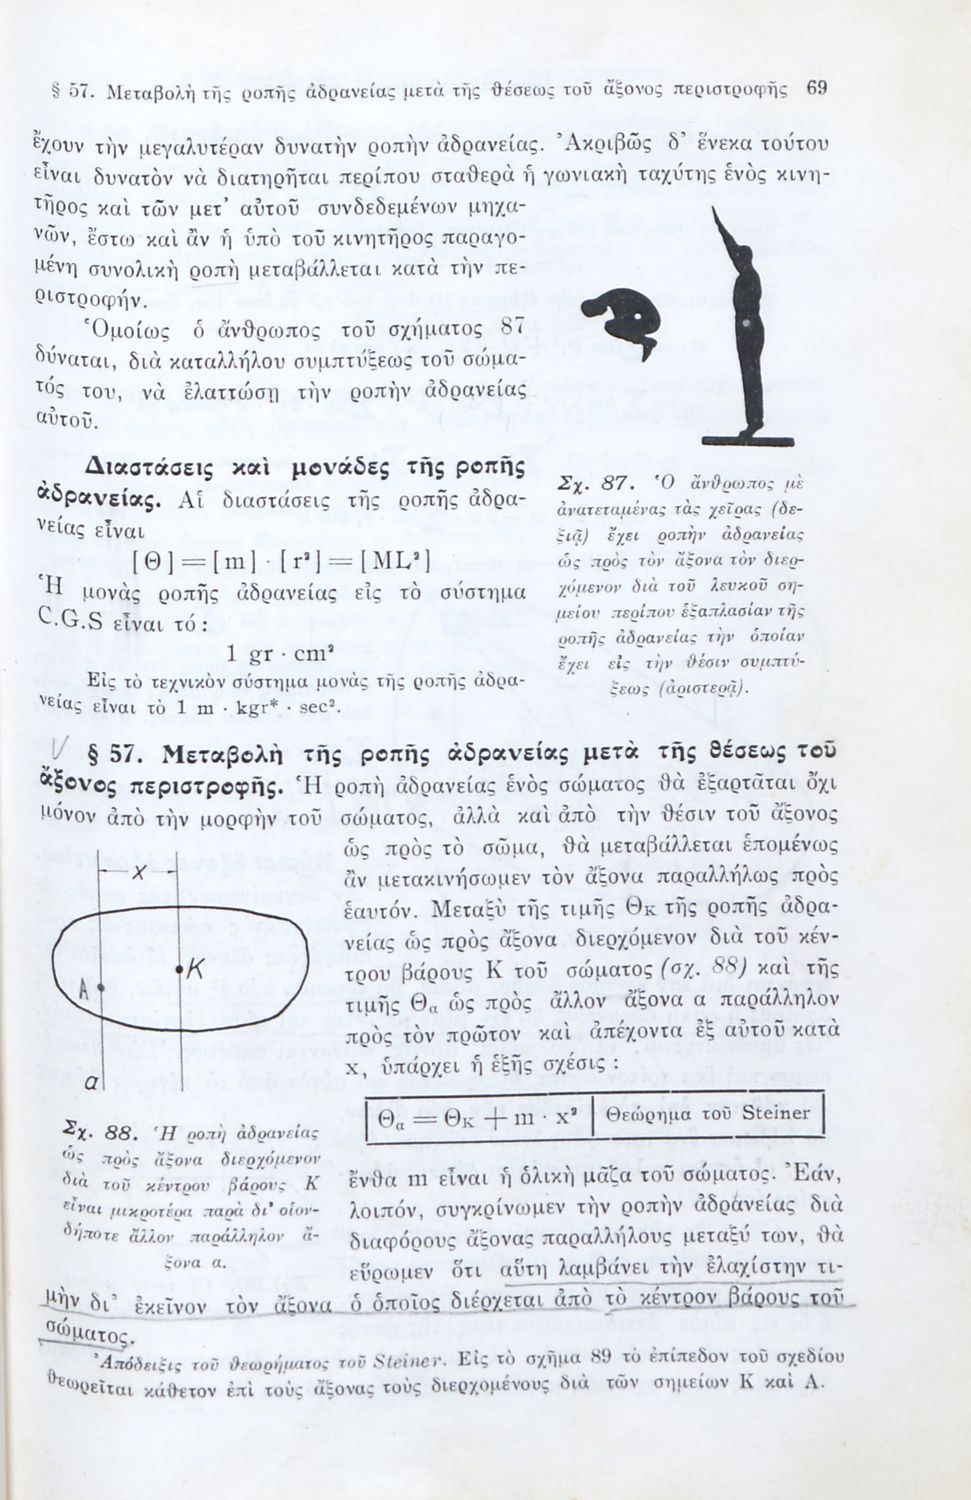 § 57. Μεταβολὴ τῆς ροπῆς ἀδρανείας μετὰ τῆς θέσεως τοῦ ἄξονος περιστροφῆς 69
ἔχουν τὴν μεγαλυτέραν δυνατὴν ροπὴν ἀδρανείας. Ἀκριβῶς δ᾽ ἕνεκα τούτου
εἶναι δυνατὸν νὰ διατηρῆται περίπου σταθερὰ ἡ γωνιακὴ ταχύτης ἑνὸς κινη-
τῆρος καὶ τῶν μετ᾽ αὐτοῦ συνδεδεμένων μηχα-
νῶν, ἔστω καὶ ἂν ἡ ὑπὸ τοῦ κινητῆρος παραγο-
μένη συνολικὴ ροπὴ μεταβάλλεται κατὰ τὴν πε-
ριστροφήν.
Ὁμοίως ὁ ἄνθρωπος τοῦ σχήματος 87
δύναται, διὰ καταλλήλου συμπτύξεως τοῦ σώμα-
τός του, νὰ ἐλαττώσῃ τὴν ροπὴν ἀδρανείας
αὐτοῦ.
Διαστάσεις καὶ μονάδες τῆς ροπῆς
ἀδρανείας. Αἱ διαστάσεις τῆς ροπῆς ἀδρα-
νείας εἶναι
[Θ] = [m] · [r²] = [ML²]
Ἡ μονὰς ροπῆς ἀδρανείας εἰς τὸ σύστημα
C.G.S εἶναι τό:
1 gr · cm²
Εἰς τὸ τεχνικὸν σύστημα μονὰς τῆς ροπῆς ἀδρα-
νείας εἶναι τὸ 1 m · kgr* · sec².
Σχ. 87. Ὁ ἄνθρωπος μὲ
ἀνατεταμένας τὰς χεῖρας (δε-
ξιᾷ) ἔχει ροπὴν ἀδρανείας
ὡς πρὸς τὸν ἄξονα τὸν διερ-
χόμενον διὰ τοῦ λευκοῦ ση-
μείου περίπου ἑξαπλασίαν τῆς
ροπῆς ἀδρανείας τὴν ὁποίαν
ἔχει εἰς τὴν θέσιν συμπτύ-
ξεως (ἀριστερᾷ).
§ 57. Μεταβολὴ τῆς ροπῆς ἀδρανείας μετὰ τῆς θέσεως τοῦ
ἄξονος περιστροφῆς. Ἡ ροπὴ ἀδρανείας ἑνὸς σώματος θὰ ἐξαρτᾶται ὄχι
μόνον ἀπὸ τὴν μορφὴν τοῦ σώματος, ἀλλὰ καὶ ἀπὸ τὴν θέσιν τοῦ ἄξονος
ὡς πρὸς τὸ σῶμα, θὰ μεταβάλλεται ἑπομένως
ἂν μετακινήσωμεν τὸν ἄξονα παραλλήλως πρὸς
ἑαυτόν. Μεταξὺ τῆς τιμῆς Θκ τῆς ροπῆς ἀδρα-
νείας ὡς πρὸς ἄξονα διερχόμενον διὰ τοῦ κέν-
τρου βάρους Κ τοῦ σώματος (σχ. 88) καὶ τῆς
τιμῆς Θα ὡς πρὸς ἄλλον ἄξονα α παράλληλον
πρὸς τὸν πρῶτον καὶ ἀπέχοντα ἐξ αὐτοῦ κατὰ
x, ὑπάρχει ἡ ἑξῆς σχέσις :
x
K
A
a
Θα = Θκ + m · x² | Θεώρημα τοῦ Steiner
Σχ. 88. Ἡ ροπὴ ἀδρανείας
ὡς πρὸς ἄξονα διερχόμενον
διὰ τοῦ κέντρου βάρους Κ
εἶναι μικροτέρα παρὰ δι᾽ οἱον-
δήποτε ἄλλον παράλληλον ἄ-
ξονα α.
ἔνθα m εἶναι ἡ ὁλικὴ μᾶζα τοῦ σώματος. Ἐάν,
λοιπόν, συγκρίνωμεν τὴν ροπὴν ἀδρανείας διὰ
διαφόρους ἄξονας παραλλήλους μεταξύ των, θὰ
εὕρωμεν ὅτι αὕτη λαμβάνει τὴν ἐλαχίστην τι-
μὴν δι᾽ ἐκεῖνον τὸν ἄξονα ὁ ὁποῖος διέρχεται ἀπὸ τὸ κέντρον βάρους τοῦ
σώματος.
Ἀπόδειξις τοῦ θεωρήματος τοῦ Steiner. Εἰς τὸ σχῆμα 89 τὸ ἐπίπεδον τοῦ σχεδίου
θεωρεῖται κάθετον ἐπὶ τοὺς ἄξονας τοὺς διερχομένους διὰ τῶν σημείων Κ καὶ Α.